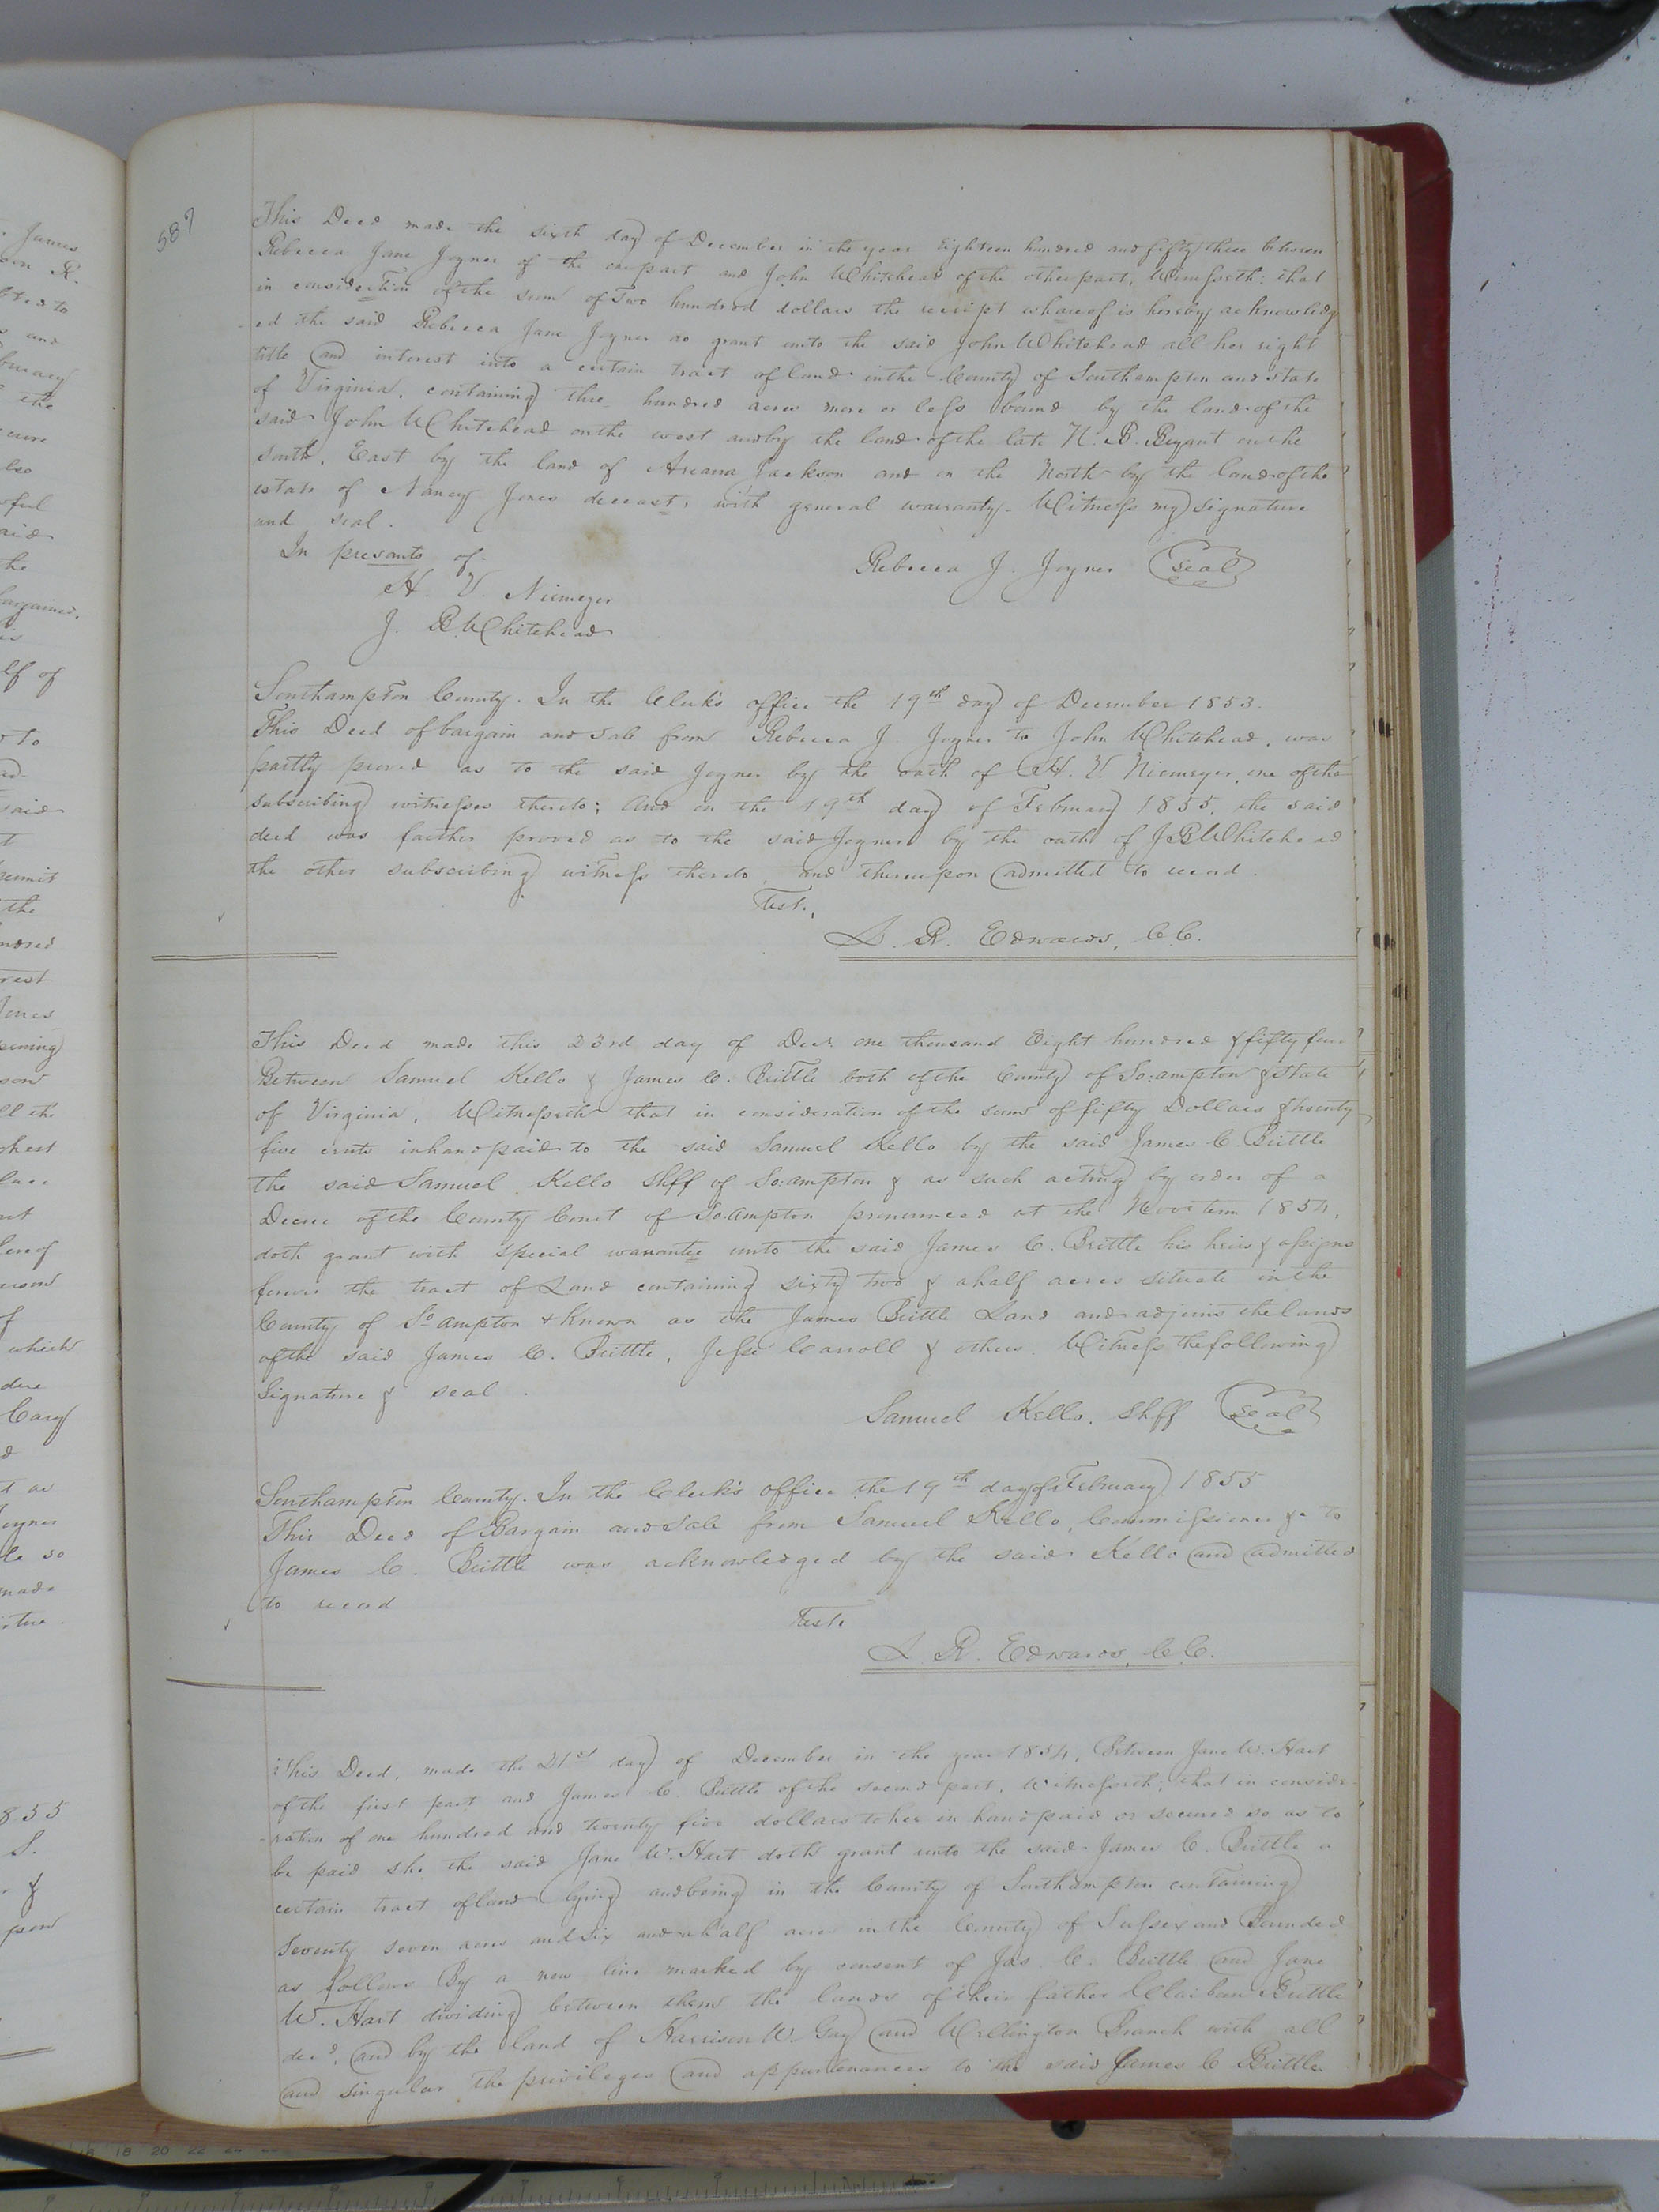 587
This Deed made the sixth day of December in the year Eighteen hundred and fifty three between
Rebecca Jane Joyner of the one part and John Whitehead of the other part, Witnesseth: that
in consideration of the sum of Two hundred dollars the receipt whereof is hereby acknowledg
ed the said Rebecca Jane Joyner do grant unto the said John Whitehead all her right
title and interest into a certain tract of land in the County of Southampton and state
of Virginia, containing three hundred acres more or less bound by the land of the
said John Whitehead on the west and by the land of the late N. B. Bryant on the
south, East by the land of Jackson and on the North by the land of the
estate of Nancy Jones deceast, with general warranty. Witness my signature
and seal.
In presants of
Rebecca J. Joyner Seal
H. V. Niemeyer
J. B. Whitehead
Southampton County. In the Clerk's office the 19th day of December 1853.
This Deed of bargain and sale from Rebecca J Joyner to John Whitehead, was
partly proved as to the said Joyner by the oath of H. V. Niemeyer, one of the
subscribing witnesses thereto; And on the 19th day of February 1855, the said
deed was farther proved as to the said Joyner by the oath of J B Whitehead
the other subscribing witness thereto, and thereupon admitted to record.
Test,
L. R. Edwards, C.C.
This Deed made this 23rd day of Decr. one thousand Eight hundred & fifty four
Between Samuel Kello & James C. Brittle both of the County of So:ampton & State
of Virginia, Witnesseth that in consideration of the sum of fifty Dollars & twenty
five cents in hand paid to the said Samuel Kello by the said James C. Brittle
the said Samuel Kello Shff of So:ampton & as such acting by order of a
Decree of the County Court of So:Ampton pronounced at the Novr term 1854,
doth grant with special warrantee unto the said James C. Brittle his heirs & assigns
forever the tract of Land containing sixty two & a half acres situate in the
County of So ampton & Known as the James Brittle Land and adjoins the lands
of the said James C. Brittle, Jesse Carroll & others. Witness the following
Signature & seal.
Samuel Kello. Shff Seal
Southampton County. In the Clerk's office the 19th day of February 1855
This Deed of Bargain and Sale from Samuel Kello, Commissioner &c to
James C. Brittle was acknowledged by the said Kello and admitted
to record
Test.
L R. Edwards, C.C.
This Deed, made the 21st day of December in the year 1854, Between Jane W. Hart
of the first part and James C. Brittle of the second part, Witnesseth; that in conside-
-ration of one hundred and twenty five dollars to her in hand paid or secured so as to
be paid she the said Jane W. Hart doth grant unto the said James C. Brittle a
certain tract of land lying and being in the County of Southampton containing
Seventy seven acres and six and a half acres in the County of Sussex and Bounded
as follows By a new line marked by consent of Jas. C. Brittle and Jane
W. Hart dividing between them the lands of their father Claiborn Brittle
decd, and by the land of Harrison W. Gay and Wellington Branch with all
and singular the privileges and appurtenances to the said James C Brittle